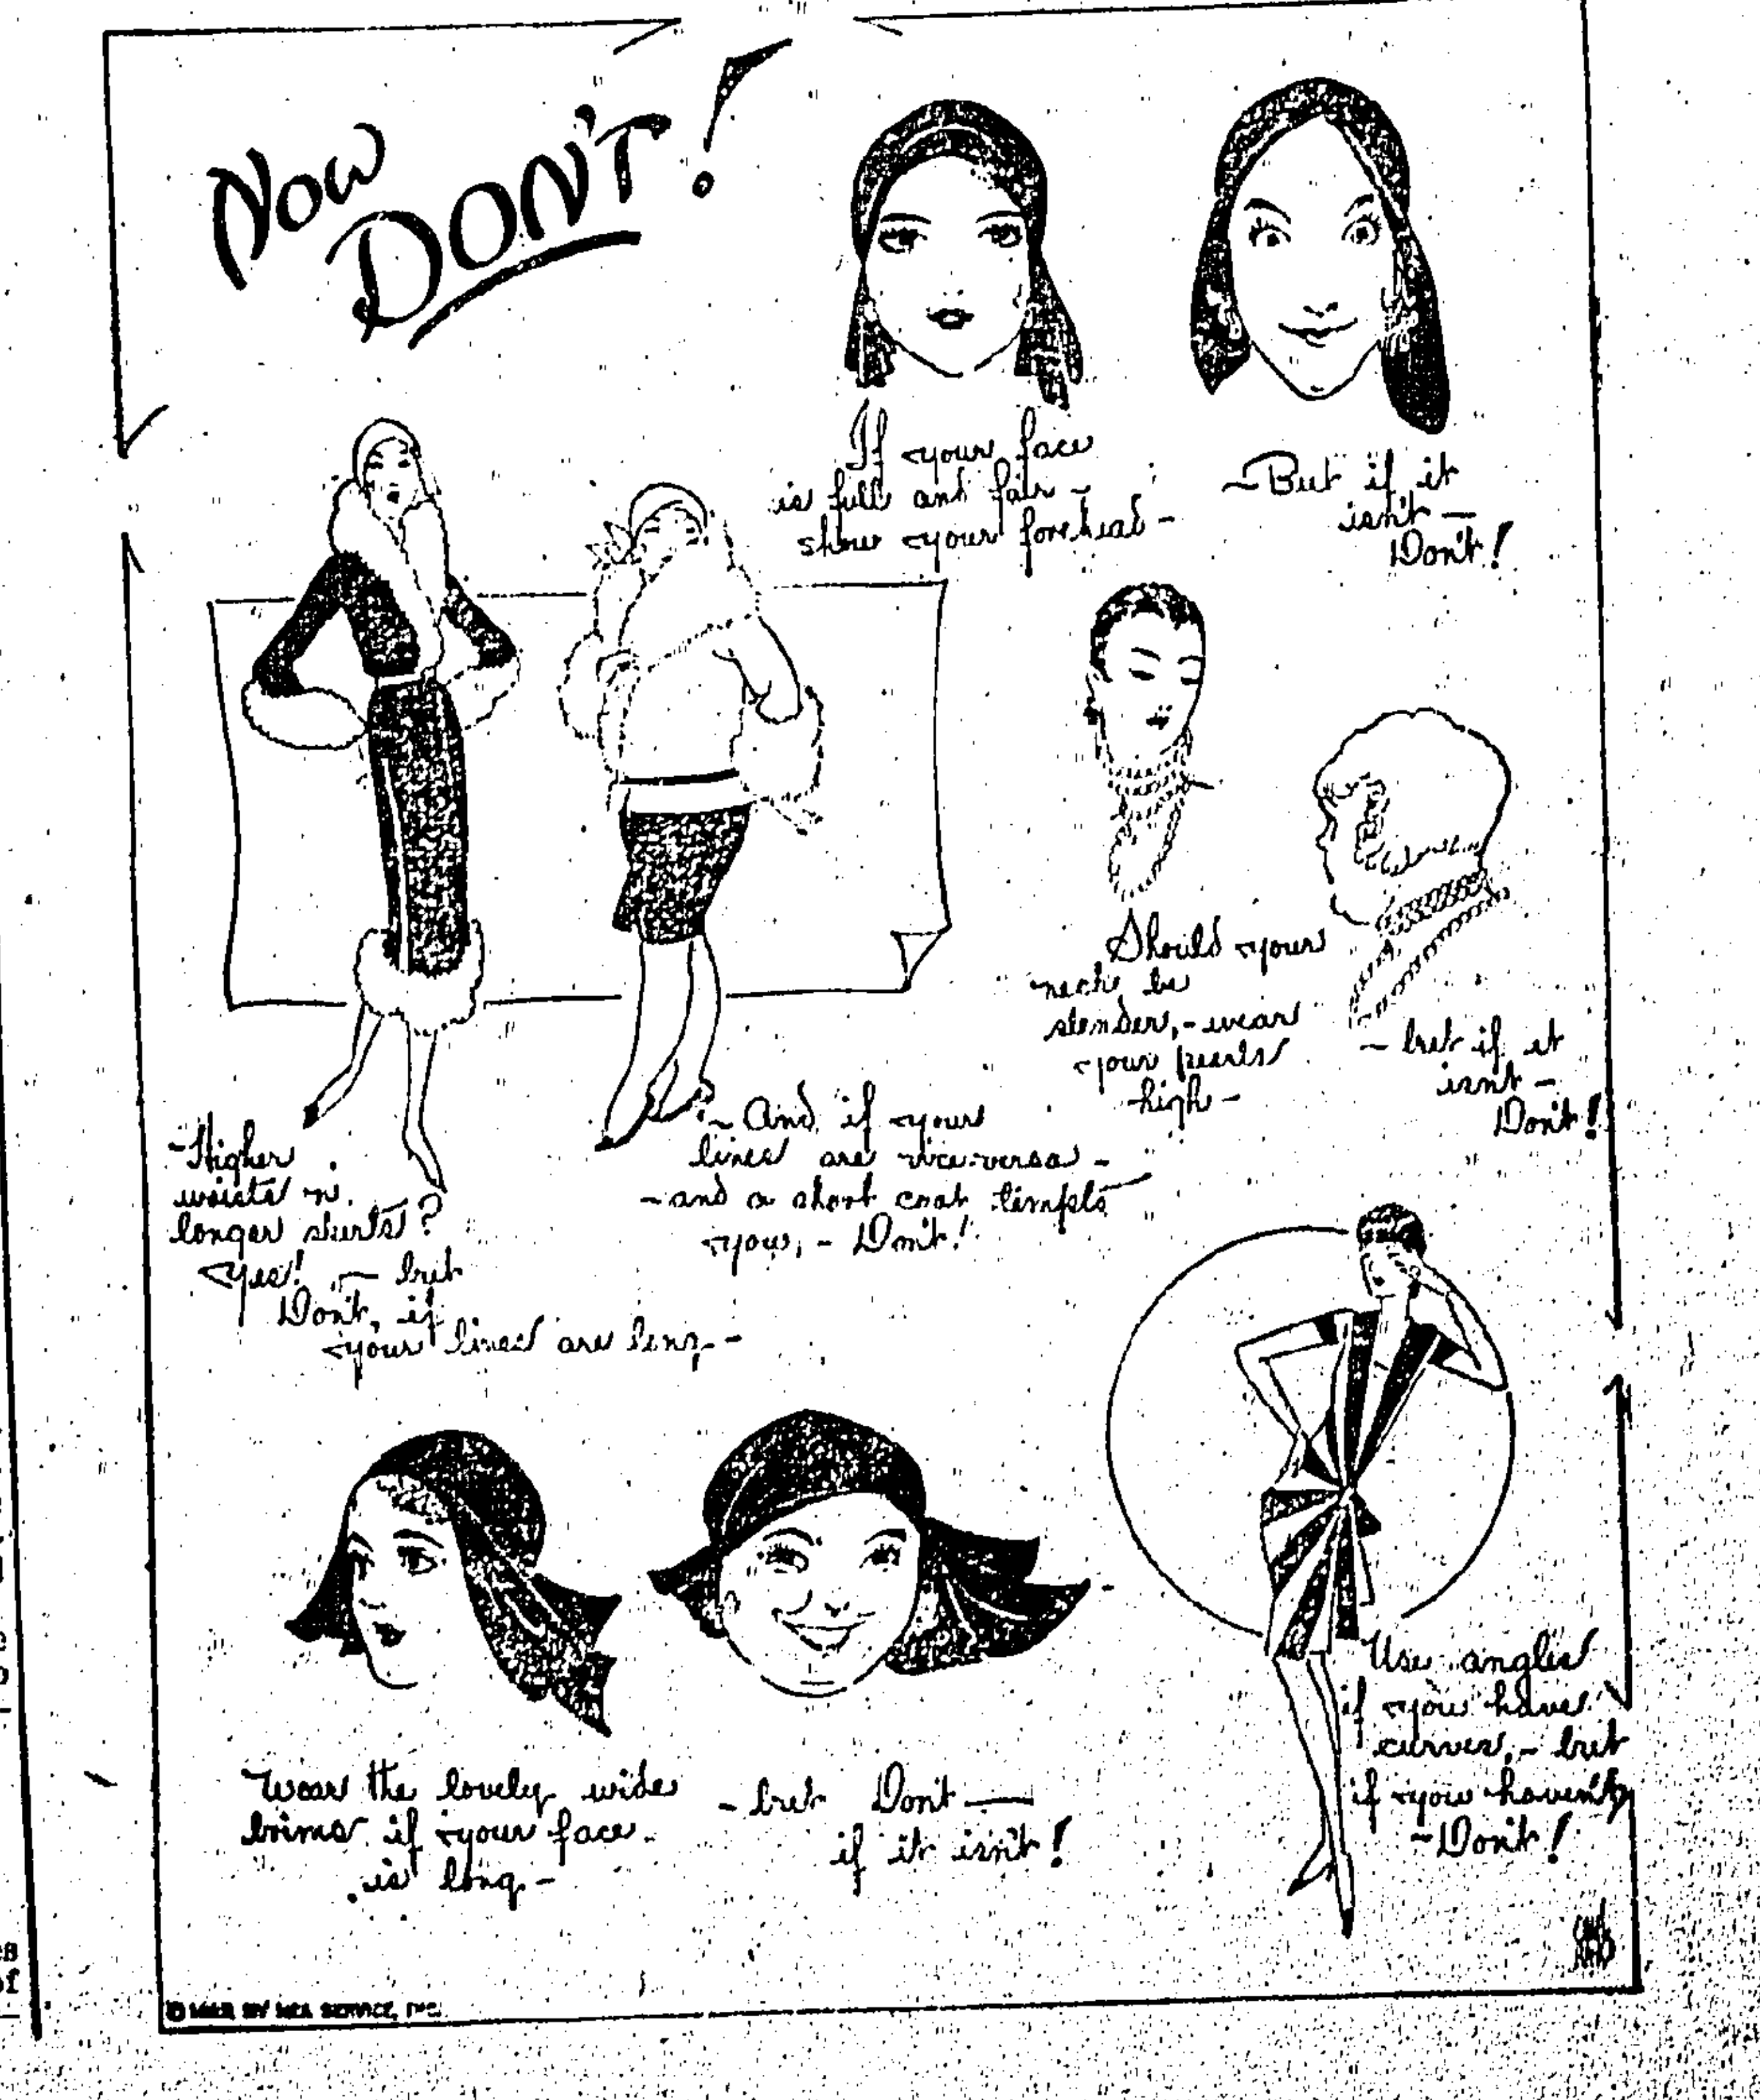 Now
DON'T!
If your face
is full and fair -
show your forehead -
- But if it
isn't -
Don't!
Should your
neck be
slender, - wear
your pearls
high -
- but if it
isn't -
Don't!
- Higher
waists 'n
longer skirts?
Yes! - but
Don't, if
your lines are long -
- And if your
lines are vice-versa -
- and a short coat tempts
you, - Don't!
Wear the lovely wide
brims if your face
is long -
- but Don't -
if it isn't!
Use angles
if you have
curves, - but
if you haven't,
- Don't!
BY NEA SERVICE, INC.